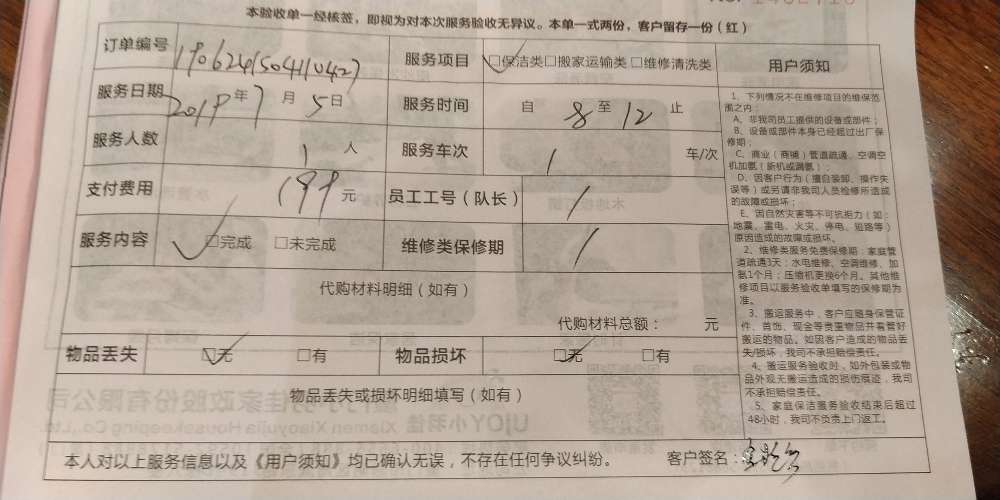 本验收单一经核签，即视为对本次服务验收无异议。本单一式两份，客户留存一份（红）
订单编号 1906241504110427 服务项目 □保洁类□搬家运输类□维修清洗类
服务日期 2019年7月5日 服务时间 自 8 至 12 止
服务人数 1 人 服务车次 / 车/次
支付费用 199 元 员工工号（队长） /
服务内容 □完成 □未完成 维修类保修期 /
代购材料明细（如有）
代购材料总额： 元
物品丢失 □无 □有 物品损坏 □无 □有
物品丢失或损坏明细填写（如有）
本人对以上服务信息以及《用户须知》均已确认无误，不存在任何争议纠纷。 客户签名：
用户须知
1、下列情况不在维修项目的维保范
围之内：
A、非我司员工提供的设备或部件；
B、设备或部件本身已经超过出厂保
修期；
C、商业（商铺）管道疏通、空调空
机加氨（新机或漏氨）；
D、因客户行为（擅自装卸、操作失
误等）或另请非我司人员检修所造成
的故障或损坏；
E、因自然灾害等不可抗拒力（如：
地震、雷电、火灾、停电、短路等）
原因造成的故障或损坏。
2、维修类服务免费保修期：家庭管
道疏通3天；水电维修、空调维修、加
氨1个月；压缩机更换6个月。其他维
修项目以服务验收单填写的保修期为
准。
3、搬运服务中，客户应随身保管证
件、首饰、现金等贵重物品并看管好
搬运的物品。如因客户造成的物品丢
失/损坏，我司不承担赔偿责任。
4、搬运服务验收时，如外包装或物
品外观无搬运造成的损伤痕迹，我司
不承担赔偿责任。
5、家庭保洁服务验收结束后超过
48小时，我司不负责上门返工。